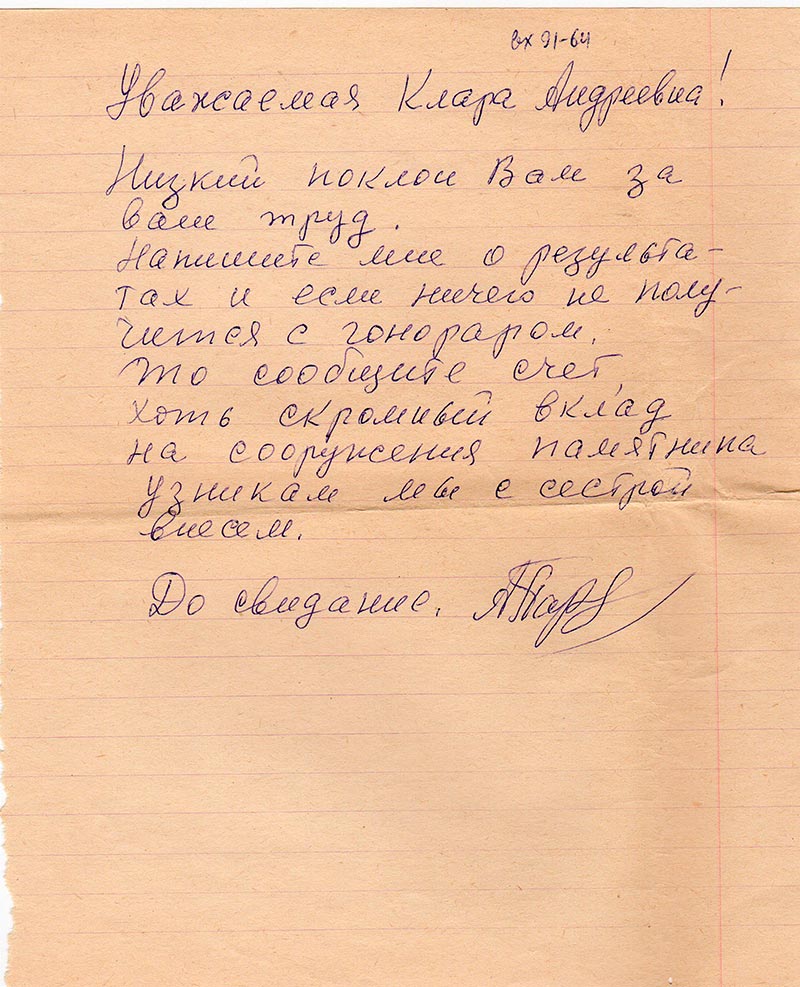 вх 91-64
Уважаемая Клара Андреевна!
Низкий поклон Вам за
ваш труд.
Напишите мне о результа-
тах и если ничего не полу-
чится с гонораром,
то сообщите счет
хоть скромный вклад
на сооружения памятника
узникам мы с сестрой
внесем.
До свидание.